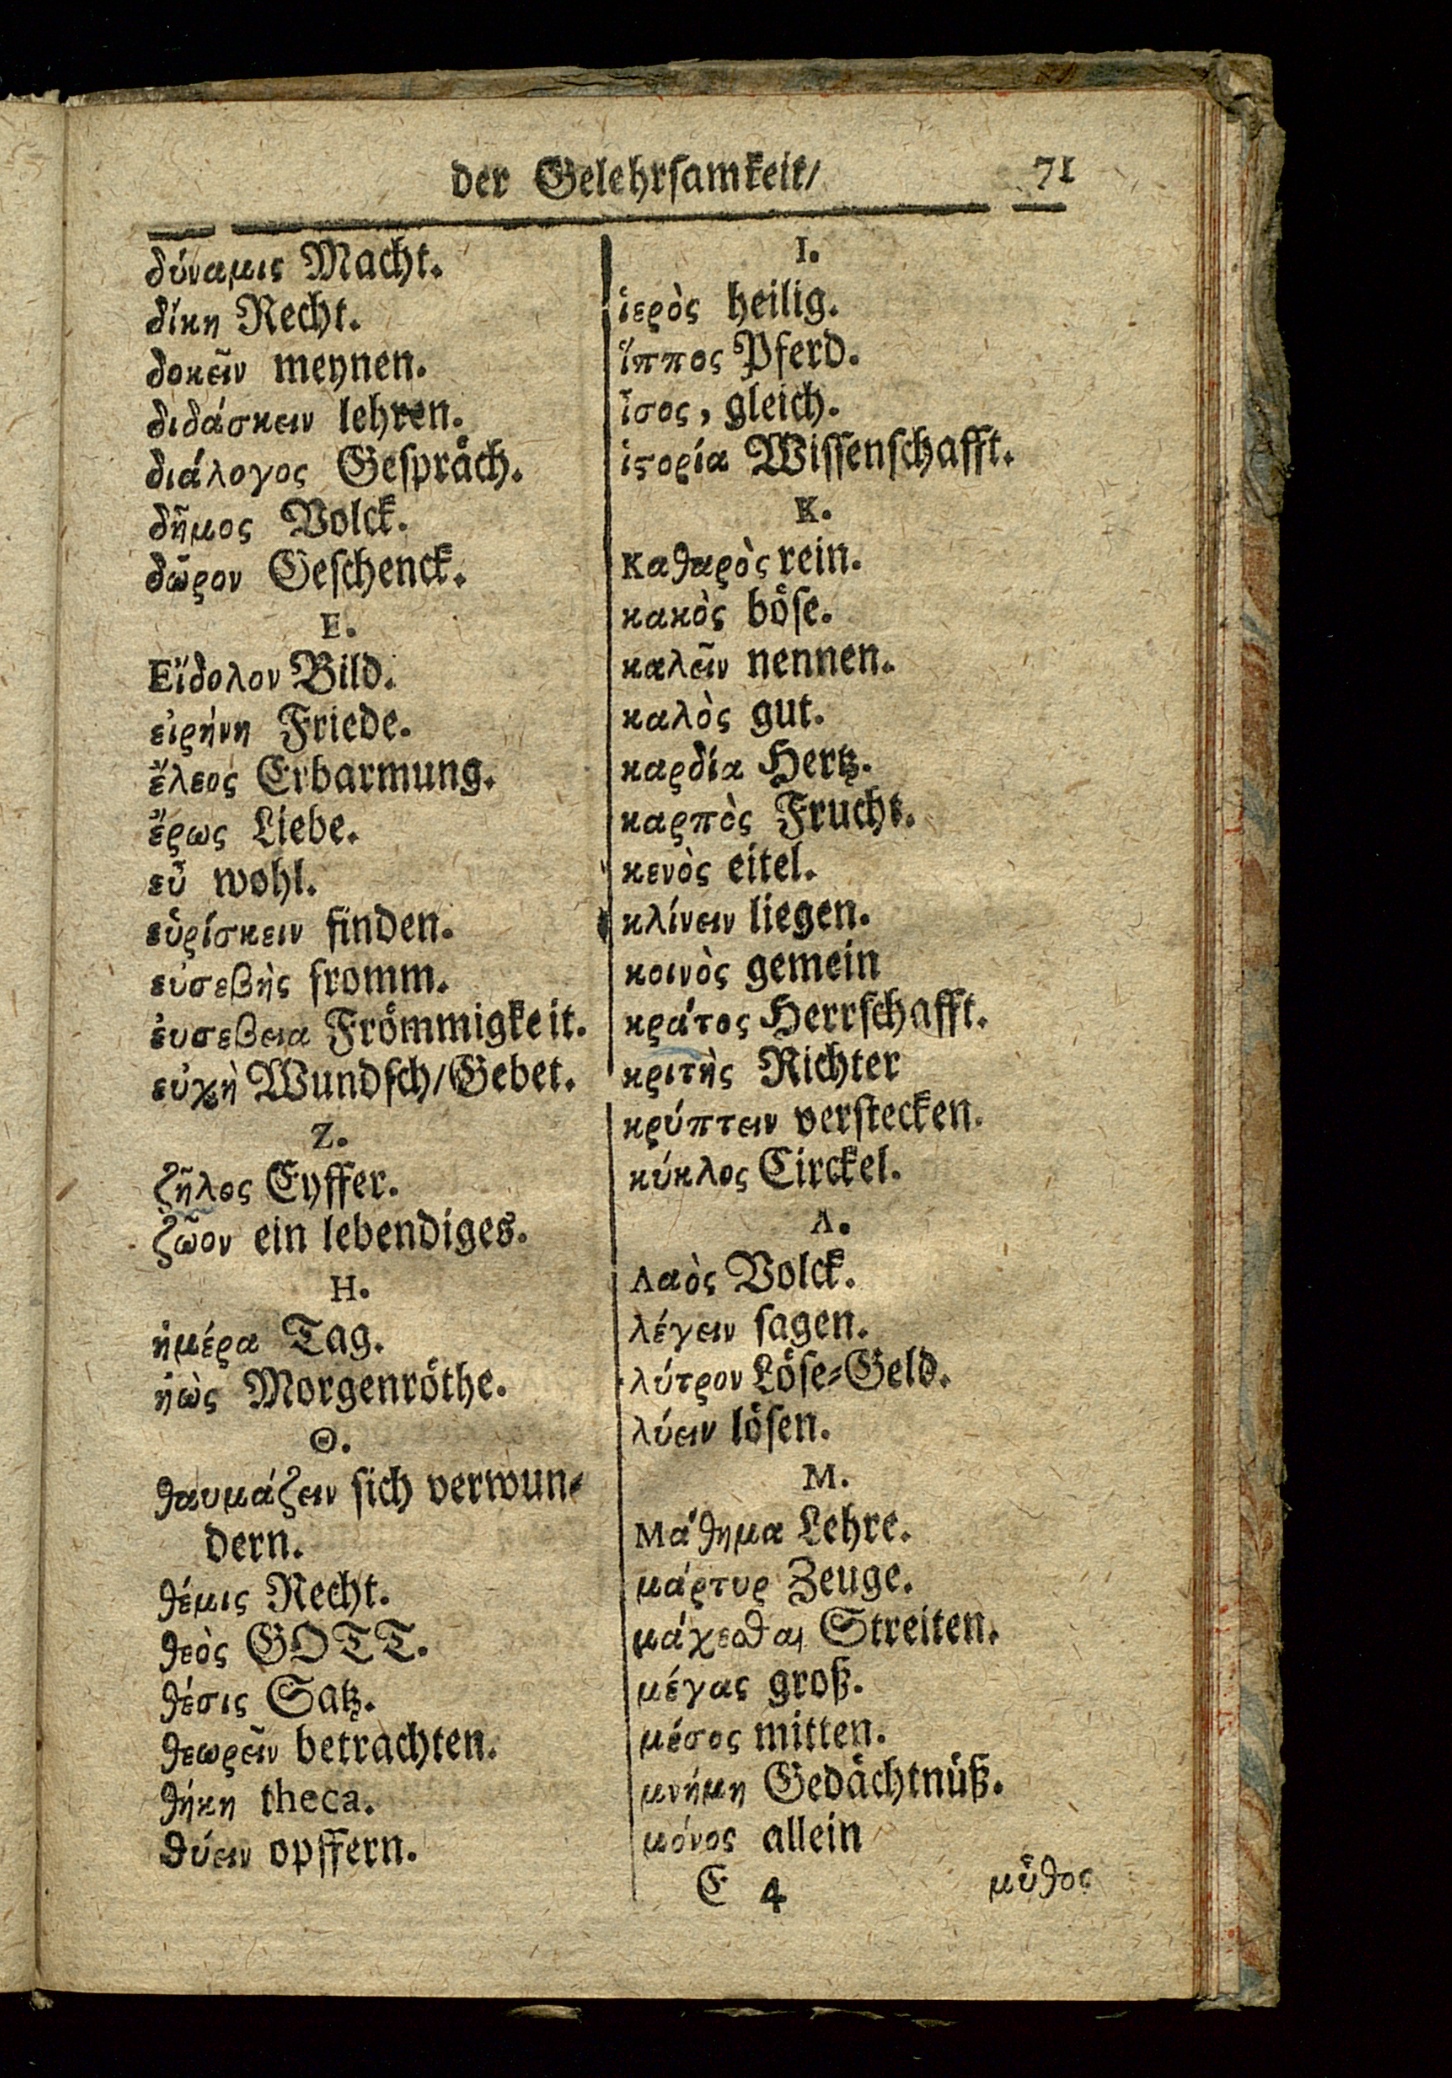 der Gelehrsamkeit/ 71
δύναμις Macht.
δίκη Recht.
δοκεῖν meynen.
διδάσκειν lehren.
διάλογος Gespräch.
δῆμος Volck.
δῶρον Geschenck.
E.
Εἴδολον Bild.
εἰρήνη Friede.
ἔλεος Erbarmung.
ἔρως Liebe.
εὖ wohl.
εὑρίσκειν finden.
εὐσεβὴς fromm.
ἐυσεβεια Frömmigkeit.
εὐχὴ Wundsch/Gebet.
Z.
ζῆλος Eyffer.
ζῶον ein lebendiges.
H.
ἡμέρα Tag.
ἠὼς Morgenröthe.
Θ.
θαυμάζειν sich verwun-
dern.
θέμις Recht.
θεὸς GOTT.
θέσις Satz.
θεωρεῖν betrachten.
θήκη theca.
θύειν opffern.
I.
ἱερὸς heilig.
ἵππος Pferd.
ἶσος, gleich.
ἱϛορία Wissenschafft.
K.
Καθαρὸς rein.
κακὸς böse.
καλεῖν nennen.
καλὸς gut.
καρδία Hertz.
καρπὸς Frucht.
κενὸς eitel.
κλίνειν liegen.
κοινὸς gemein
κράτος Herrschafft.
κριτὴς Richter
κρύπτειν verstecken.
κύκλος Circkel.
Λ.
Λαὸς Volck.
λέγειν sagen.
λύτρον Löse-Geld.
λύειν lösen.
M.
Μάθημα Lehre.
μάρτυρ Zeuge.
μάχεσθαι Streiten.
μέγας groß.
μέσος mitten.
μνήμη Gedächtnüß.
μόνος allein
E 4 μῦθος